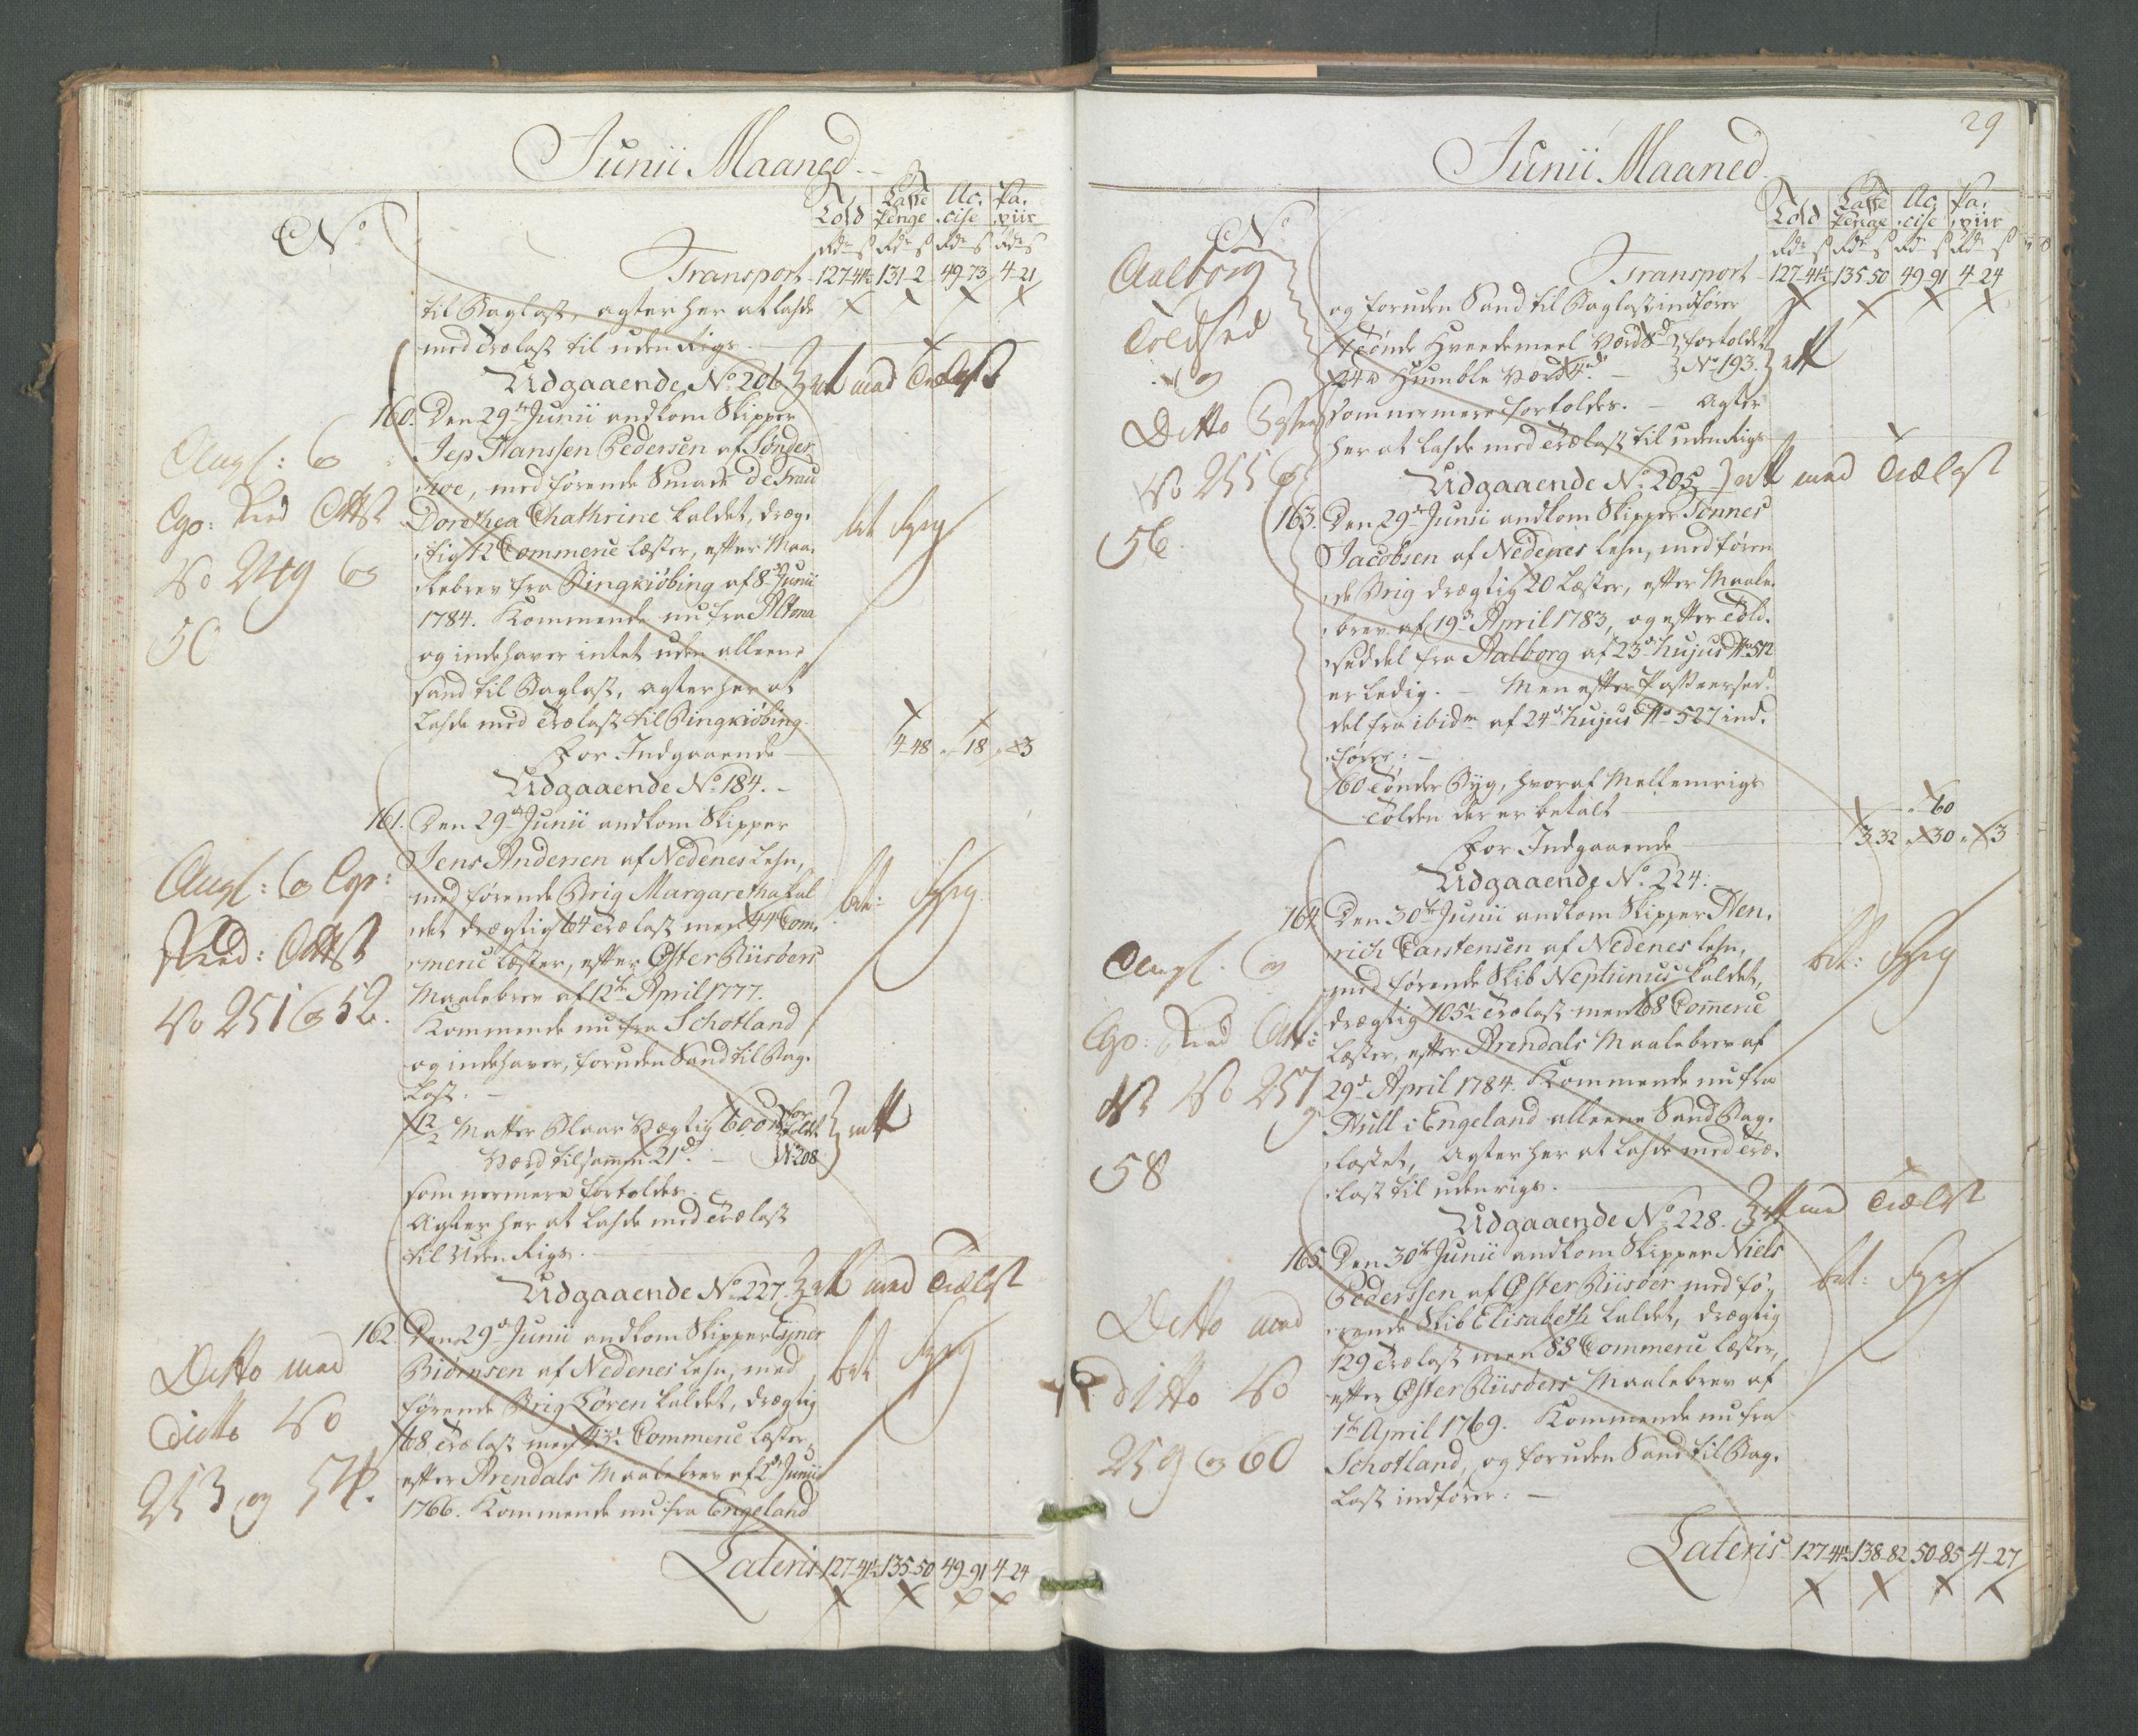 Junii Maaned
No
Told
Laste Penge
Accise
Papiir
Rdr s Rdr s Rdr s Rdr s
Transport 127-41½ 131-2 49-73 4-21
til Baglast, agter her at lade
med Trælast til uden Rigs.
Udgaaende No 206 rett med Trælast
160. Den 29de Junii ankom Skipper
Jep Hanssen Pedersen af Sønder
hoe, medførende Smack de Frau
Dorothea Chathrine kaldet, dræg-
tig 12 Commerce Læster, efter Maa-
lebrev fra Ringkiøbing af 8de Junii
1784. Kommende nu fra Altona
og indehaver intet uden alleene
sand til Baglast, agter her at
lade med Trælast til Ringkiøbing
For Indgaaende 4-48 18 3
Udgaaende No 184.
No
50
161. Den 29de Junii ankom Skipper
Jens Andersen af Nedenes Lehn,
med førende Brig Margaretha kal-
det drægtig 64 Trælast men 44 Com-
merce Læster, efter Øster Riisøers
Maalebrev af 12te April 1777.
Kommende nu fra Schotland
og indehaver, foruden Sand til Bag-
Last.
12/2 Matter Blaar Vægtig 600
Værd tilsammen 21 d. No 208 rett
som nærmere fortoldes.
Agter her at lade med Trælast
til Uden Rigs.
Udgaaende No 227. rett med Trælast
No 251 og 52.
162. Den 29de Junii ankom Skipper Ejner
Biørnsen af Nedenes Lehn, med
førende Brig Søren kaldet, drægtig
68 Trælast men 43½ Commerce Læster,
efter Arendals Maalebrev af Junii
1766. Kommende nu fra Engeland
Ditto med
ditto No
253 og 54.
Lateris 127-41½ 135-50 49-91 4-24
29
Junii Maaned
No
Told
Laste Penge
Accise
Papiir
Rdr s Rdr s Rdr s Rdr s
Transport 127-41½ 135-50 49-91 4-24
Aalborg
Toldsed
og
Ditto
No 255 og
56.
og foruden Sand til Baglast indfører
1 Tønde Hvedemeel Værd 8 d fortoldet
24 lb Humble Værd 4 d. No 193. rett
som nærmere fortoldes. Agter
her at lade med Trælast til uden Rigs
Udgaaende No 205 rett med Trælast
163. Den 29de Junii ankom Skipper Tønnes
Jacobsen af Nedenes Lehn, med føren-
de Brig drægtig 20 Læster, efter Maale-
brev af 19de April 1783, og efter Told-
seddel fra Aalborg af 23de hujus No 512
er ledig. Men efter Passeersed-
del fra ibidm af 24de hujus No 527 ind-
fører:
160 Tønder Byg, hvoraf Mellemrigs
Tolden der er betalt 60
For Indgaaende 3 32 30 3
Udgaaende No 224.
164. Den 30te Junii ankom Skipper Hen-
rich Carstensen af Nedenes Lehn,
med førende Skib Neptunus kaldet,
drægtig 105½ Trælast men 68 Commerce
Læster, efter Arendals Maalebrev af
29de April 1784. Kommende nu fra
Hull i Engeland alleene Sand Bag-
lastet, Agter her at lade med Træ-
last til uden rigs.
Udgaaende No 228. rett med Trælast
No 257
og
58
165. Den 30te Junii ankom Skipper Niels
Pederssen af Øster Riisøer med fø-
rende Skib Elisabeth kaldet, drægtig
129 Trælast men 88 Commerce Læster,
efter Øster Riisøers Maalebrev af
1te April 1769. Kommende nu fra
Schotland, og foruden Sand til Bag-
Last indfører:
Ditto med
ditto No
259 og 60
Lateris 127-41½ 138-82 50-85 4-27